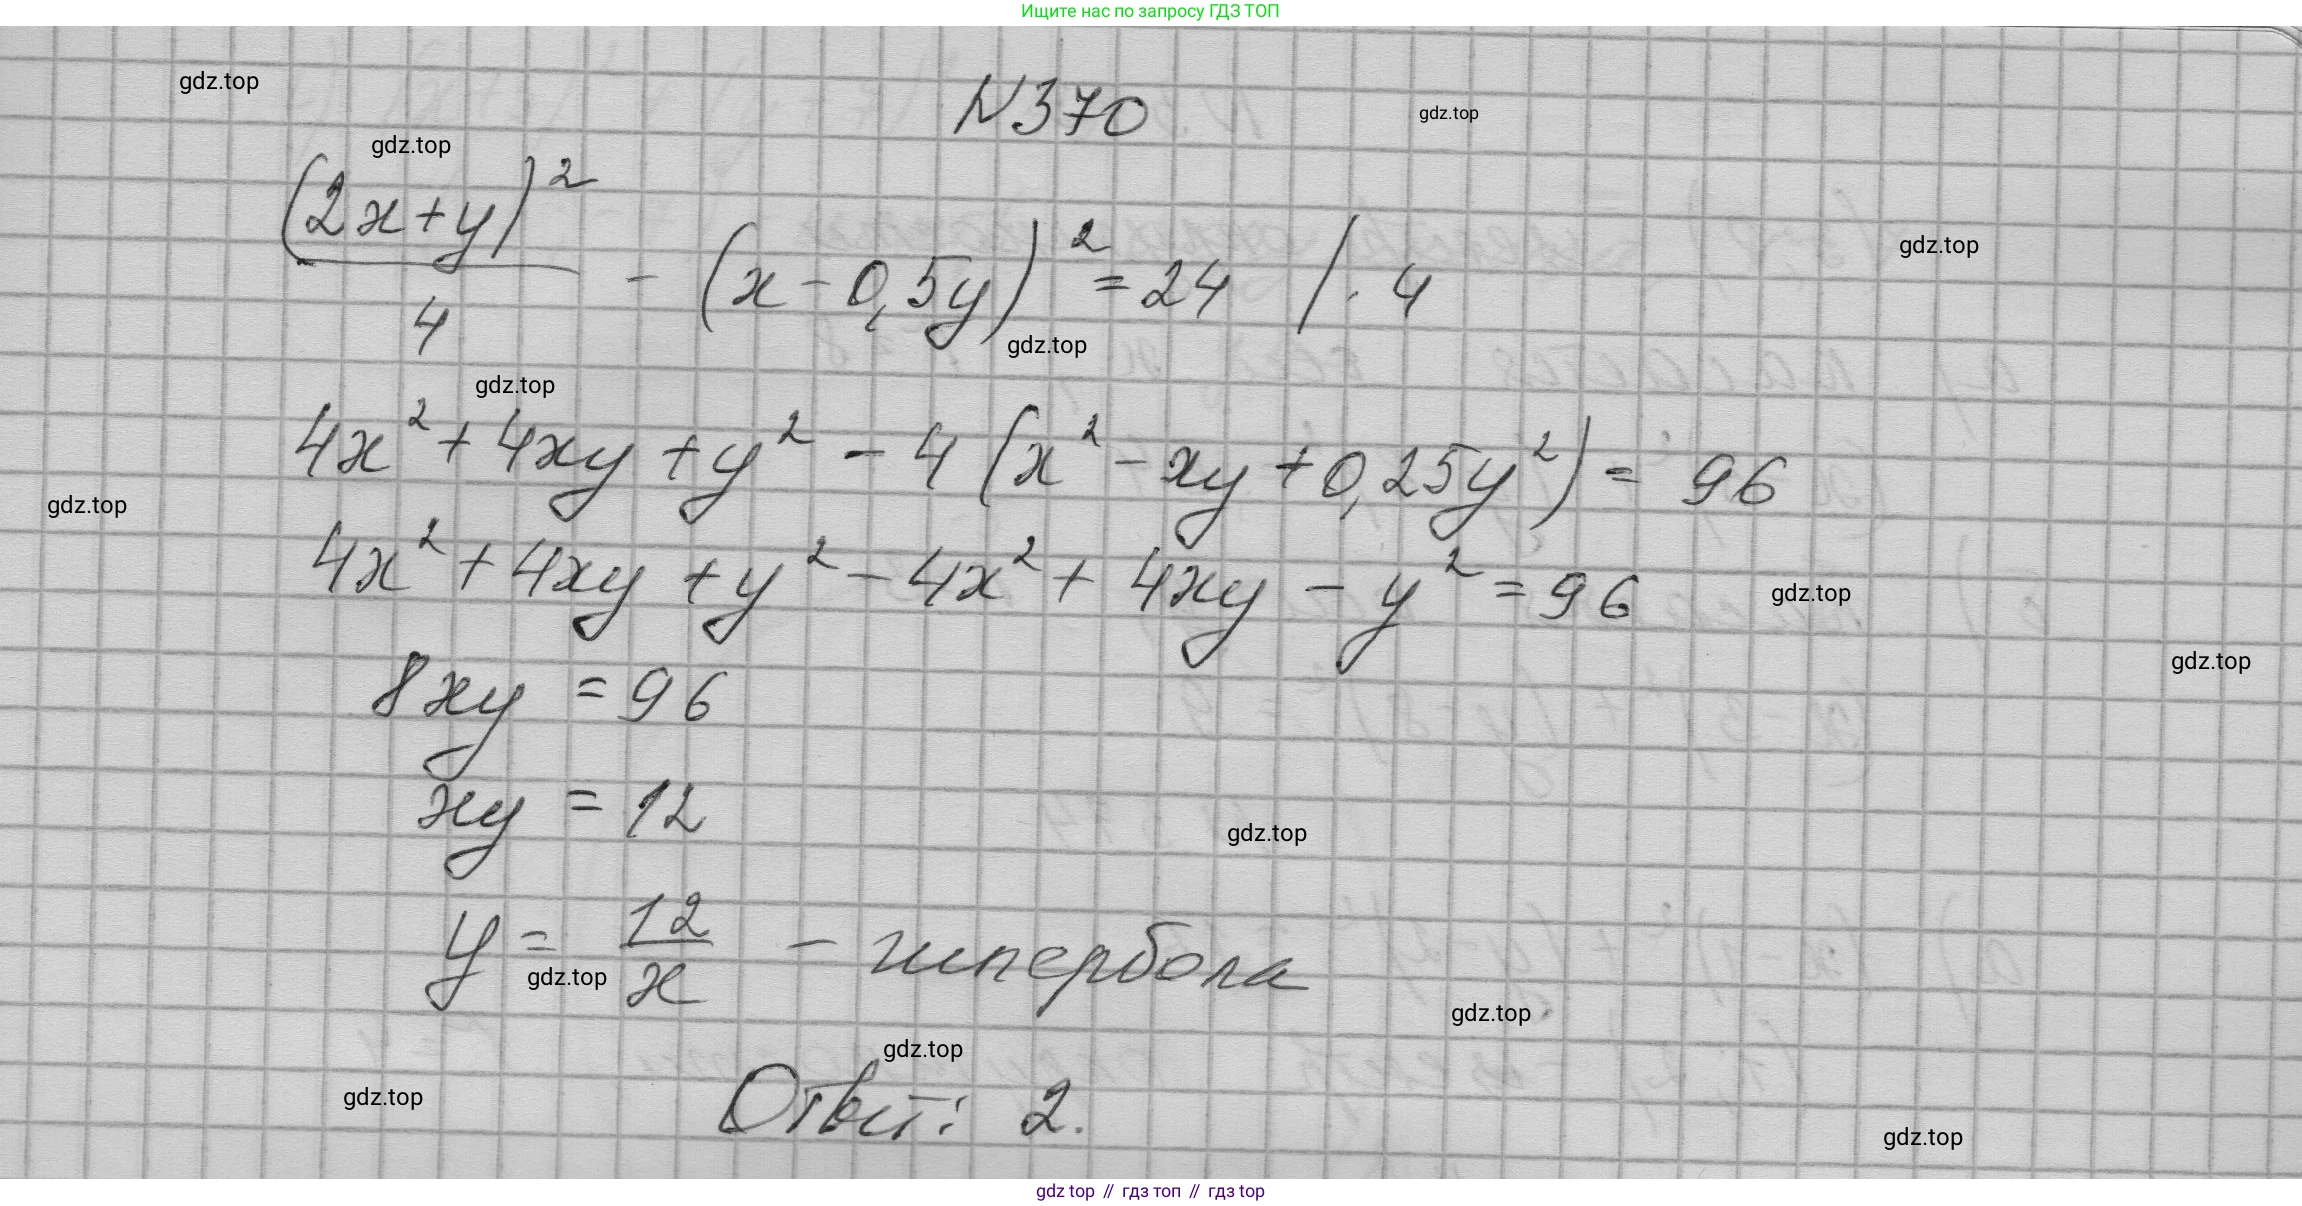 Ищите нас по запросу ГДЗ ТОП
gdz.top
N370
gdz.top
gdz.top
(2x+y)²/4 - (x-0,5y)² = 24 /·4
gdz.top
gdz.top
gdz.top
4x² + 4xy + y² - 4(x² - xy + 0,25y²) = 96
gdz.top
4x² + 4xy + y² - 4x² + 4xy - y² = 96
gdz.top
gdz.top
8xy = 96
xy = 12
gdz.top
y = 12/x - гипербола
gdz.top
gdz.top
gdz.top
gdz.top
Ответ: 2.
gdz.top
gdz top // гдз топ // гдз top